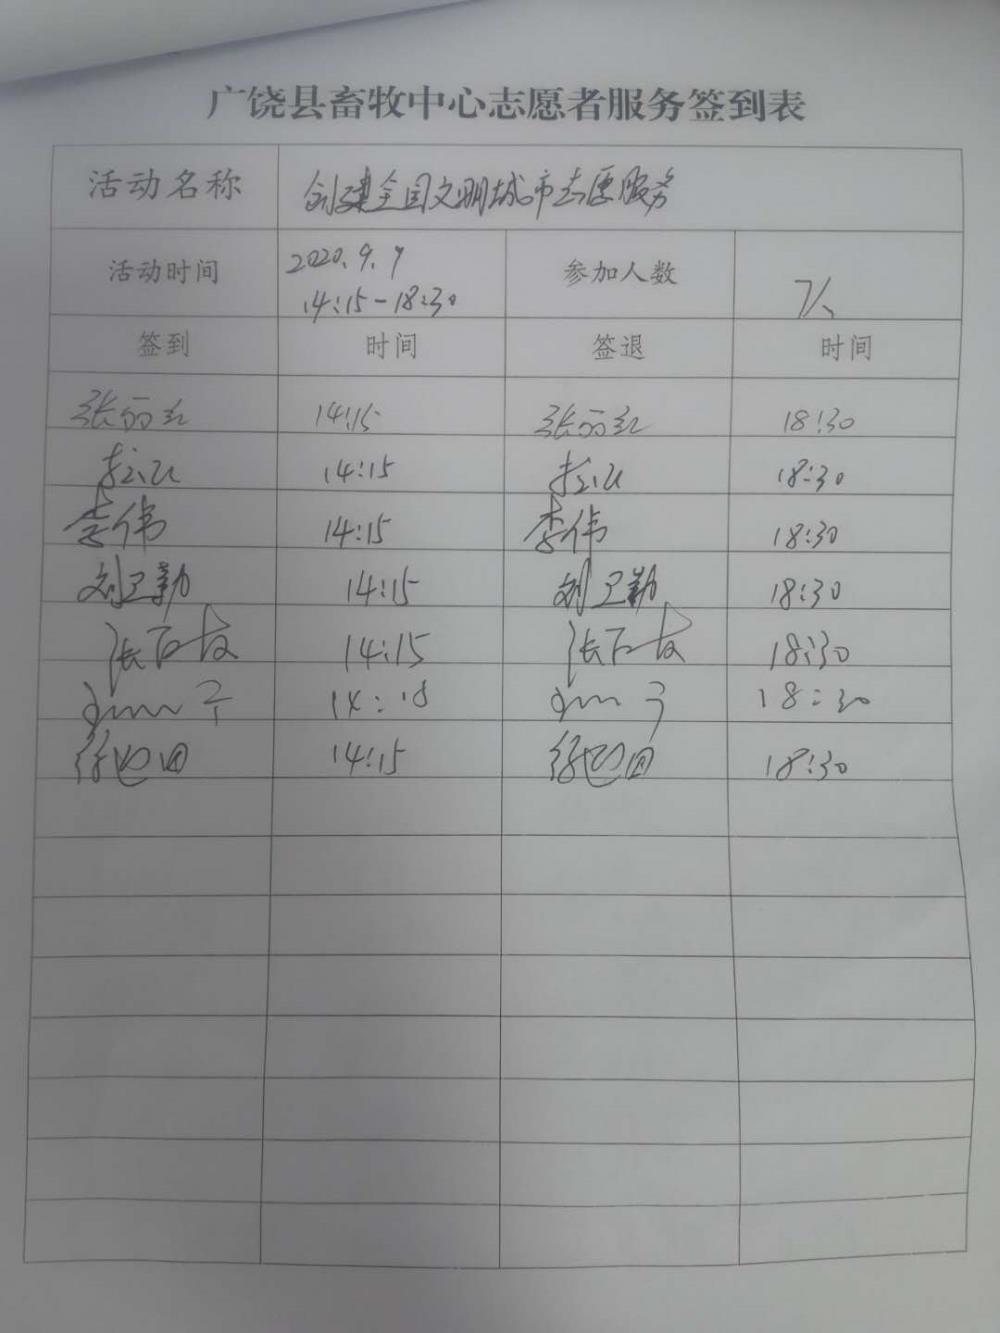 广饶县畜牧中心志愿者服务签到表
活动名称 创建全国文明城市志愿服务
活动时间 2020.9.9 14:15-18:30 参加人数 7人
签到 时间 签退 时间
张丽红 14:15 张丽红 18:30
14:15 18:30
李伟 14:15 李伟 18:30
刘卫勤 14:15 刘卫勤 18:30
张 14:15 张 18:30
14:18 18:30
徐 14:15 徐 18:30